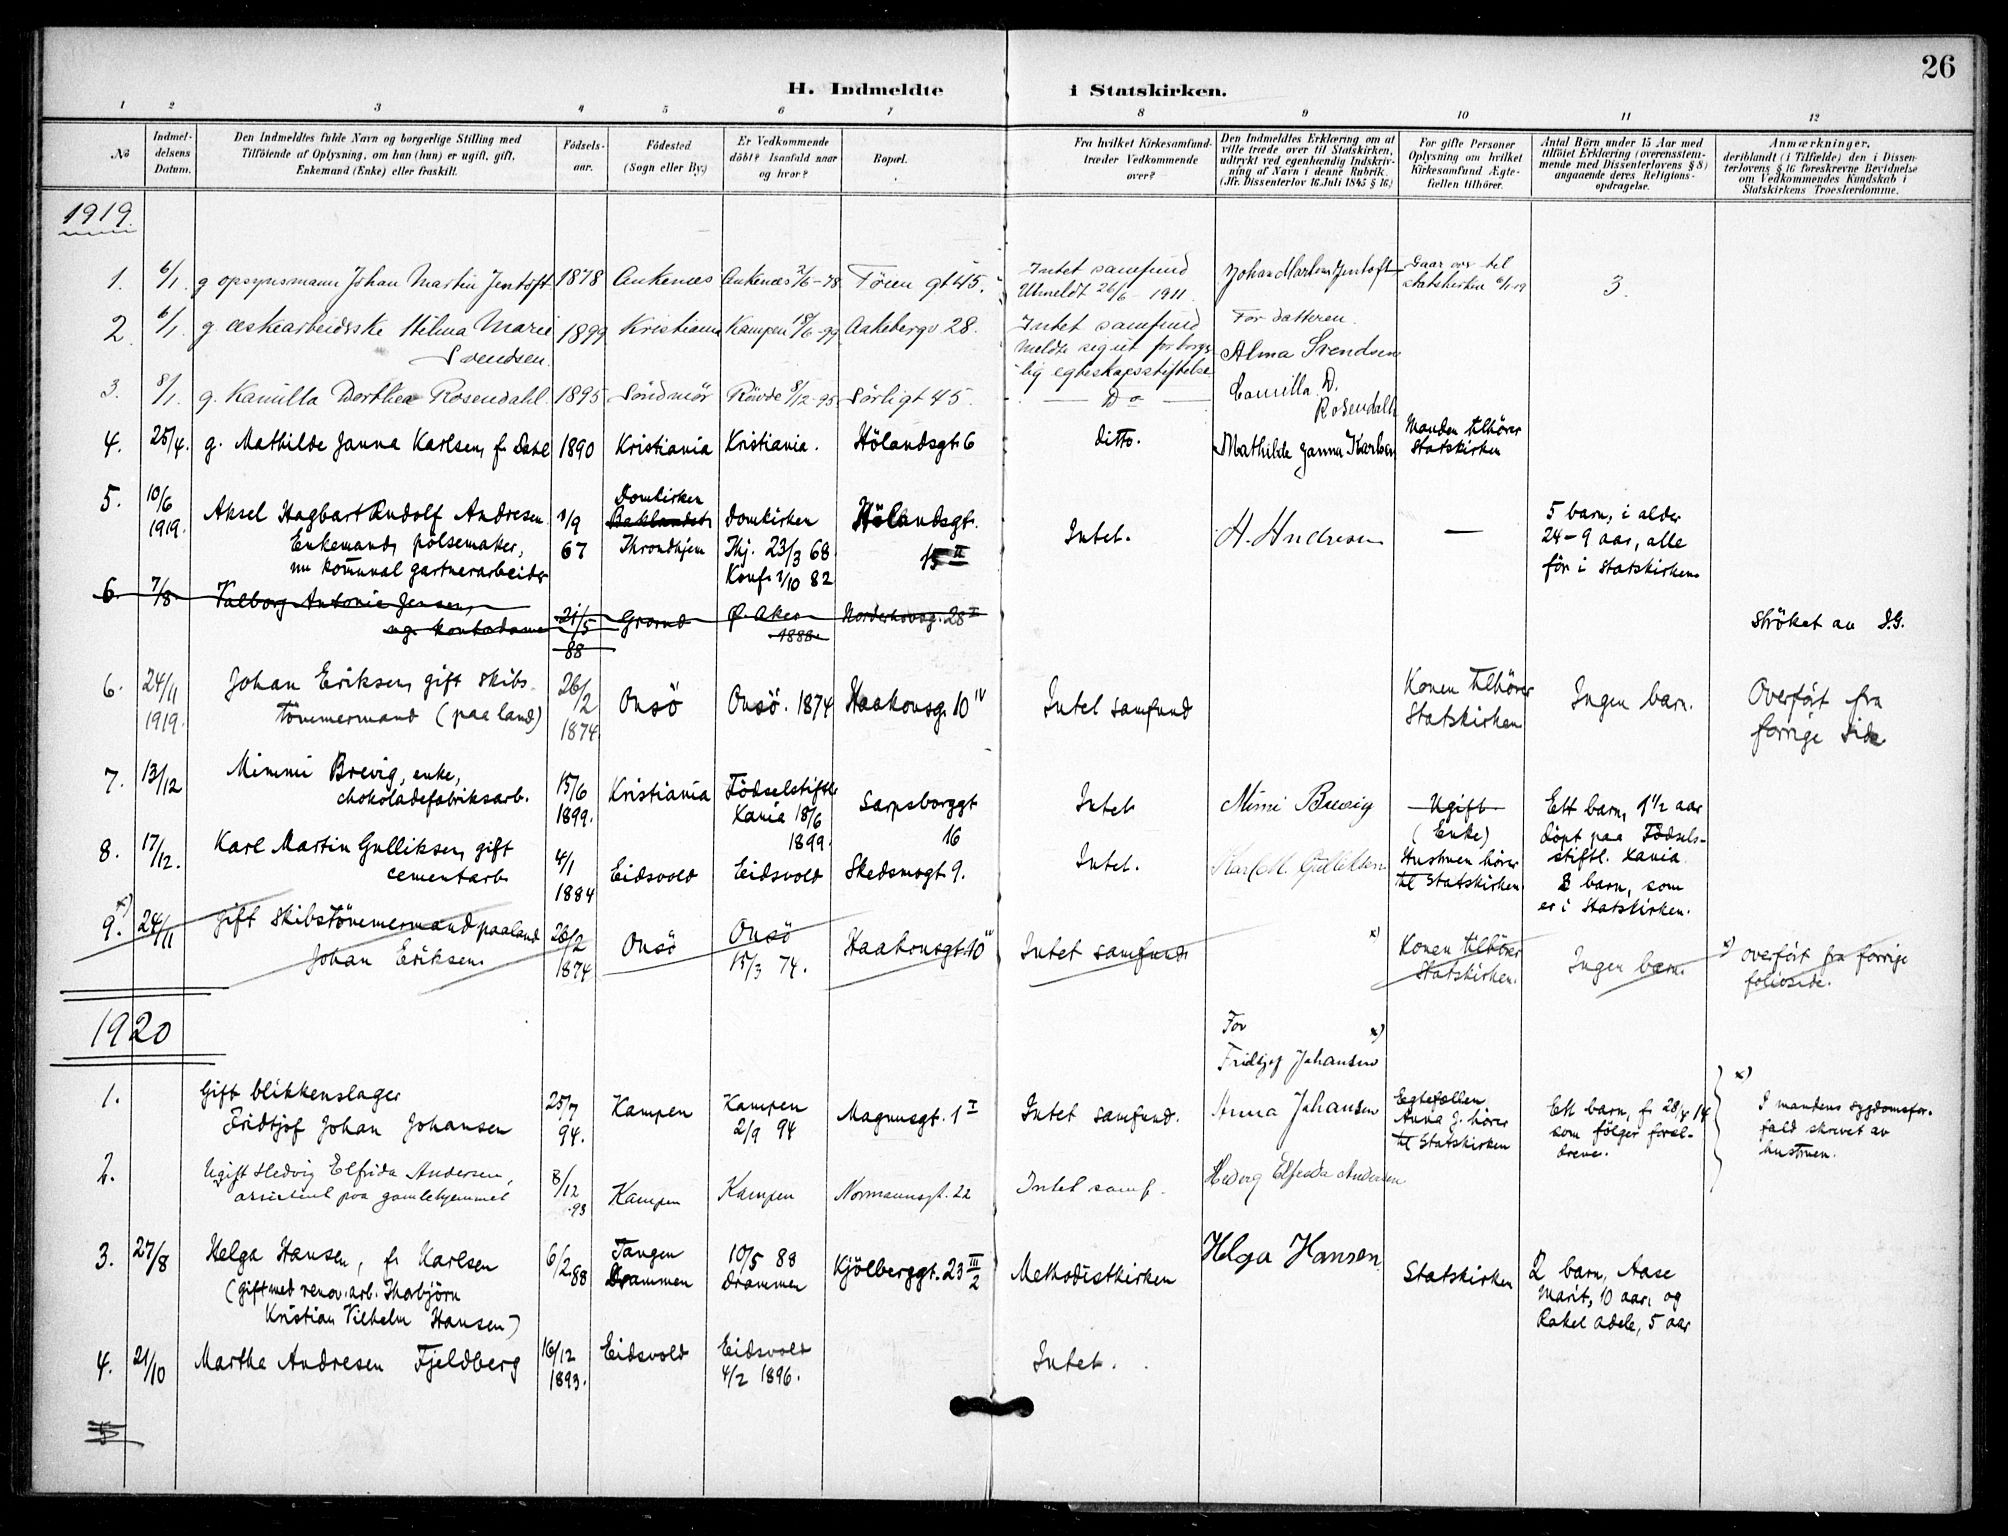 26
H. Indmeldte i Statskirken.
1 2 3 4 5 6 7 8 9 10 11 12
No
Indmel-
delsens
Datum.
Den Indmeldtes fulde Navn og borgerlige Stilling med
Tilföiende af Oplysning, om han (hun) er ugift, gift,
Enkemand (Enke) eller fraskilt.
Födsels-
aar.
Födested
(Sogn eller By.)
Er Vedkommende
döbt? Isaafald naar
og hvor?
Bopæl.
Fra hvilket Kirkesamfund
træder Vedkommende
over?
Den Indmeldtes Erklæring om at
ville træde over til Statskirken,
udtrykt ved egenhændig Indskriv-
ning af Navn i denne Rubrik.
(Jfr. Dissenterlov 16 Juli 1845 § 16.)
For gifte Personer
Oplysning om hvilket
Kirkesamfund Ægte-
fællen tilhörer.
Antal Börn under 15 Aar med
tilföiet Erklæring (overensstem-
mende med Dissenterlovens § 8)
angaaende deres Religions-
opdragelse.
Anmærkninger,
deriblandt (i Tilfælde) den i Dissen-
terlovens § 16 foreskrevne Bevidnelse
om Vedkommendes Kundskab i
Statskirkens Troeslærdomme.
1919.
1. 6/1. g opsynsmann Johan Martin Jentoft 1878 Ankenæs Ankenæs 2/6-78 Töien gt 45.
Intet samfund
Utmeldt 26/6 - 1911.
Johan Martin Jentoft
Gaar over til
statskirken 6/1-19
3.
2. 6/1. g. æskearbeiderske Hilma Marie
Svendsen.
1899 Kristiania Kampen 18/6-99 Aakebergv 28.
Intet samfund
Meldte seg ut for borger
lig egteskapsstiftelse
For datteren.
Alma Svendsen
3. 8/1. g. Kamilla Dorthea Rosendahl. 1895 Söndmör Rövde 8/12-95 Sörligt 45.
— Do —
Camilla D.
Rosendahl
4. 25/4. g. Mathilde Janna Karlsen, f. Dahl 1890 Kristiania Kristiania. Hölandsgt. 6
ditto.
Mathilde Janna Karlsen
Manden tilhörer
Statskirken
5. 10/6
1919.
Aksel Hagbart Rudolf Andresen
Enkemand, pölsemaker,
nu kommunal gartnerarbeider
1/9
67
Domkirken
Baklandet
Throndhjem
Domkirken
Thj. 23/3 68
Konf. 1/10 82
Hölandsgt.
15 II
Intet.
H. Andresen
—
5 barn, i alder
24-9 aar, alle
för i Statskirken.
6. 7/8. Valborg Antonie Jensen,
ug. kontordame
21/5
88
Grorud
Ø. Aker
1888.
Norderhovsg. 28 II
Ströket av S.G.
6. 24/11
1919.
Johan Eriksen, gift skibs-
tömmermand (paa land)
26/2
1874.
Onsö Onsö. 1874 Haakonsg. 10 IV
Intet samfund
Konen tilhörer
Statskirken
Ingen barn.
Overfört fra
forrige side
7. 13/12 Mimmi Brevig, enke,
chokoladefabriksarb.
15/6
1899.
Kristiania
Födselstiftl.
Xania 18/6
1899.
Sarpsborggt
16
Intet
Mimi Brevig
Ugift
(Enke)
Ett barn, 1 1/2 aar
döpt paa Födsels-
stiftl. Xania.
8. 17/12. Karl Martin Gulliksen, gift
cementarb.
4/1
1884
Eidsvold Eidsvold Skedsmogt. 9.
Intet.
Karl M. Gulliksen
Hustruen hörer
til Statskirken.
8 barn, som
er i Statskirken.
9. x) 24/11 gift skibstömmermand paaland
Johan Eriksen
26/2
1874
Onsö
Onsö
15/3 74.
Haakonsgt. 10 IV
Intet samfund.
x)
Konen tilhörer
Statskirken.
Ingen barn.
x) overfört fra forrige
folioside.
1920
For x)
Fridtjof Johansen
1. Gift blikkenslager
Fridtjof Johan Johansen
25/7
94.
Kampen
Kampen
2/9 94
Magnusgt. 1 I
Intet samfund.
Anna Johansen
Egtefællen
Anna J. hörer
til Statskirken
Ett barn, f. 28/4 14
som fölger foræl-
drene.
x)
I mandens sygdomsfor-
fald skrevet av
hustruen.
2. Ugift Hedvig Elfrida Andersen,
assistent paa gamlehjemmet
8/12
93
Kampen Kampen Normannsgt. 22
Intet samf.
Hedvig Elfrida Andersen
3. 27/8 Helga Hansen, f. Karlsen
(gift med renov. arb. Thorbjörn
Kristian Vilhelm Hansen)
6/2 88
Tangen
Drammen
10/5 88
Drammen
Kjölberggt. 23 III
2
Methodistkirken
Helga Hansen.
Statskirken
2 barn, Aase
Marit, 10 aar, og
Rakel Adele, 5 aar
4. 21/10 Martha Andresen Fjeldberg
16/12
1893.
Eidsvold
Eidsvold
4/2 1896.
Intet.
5